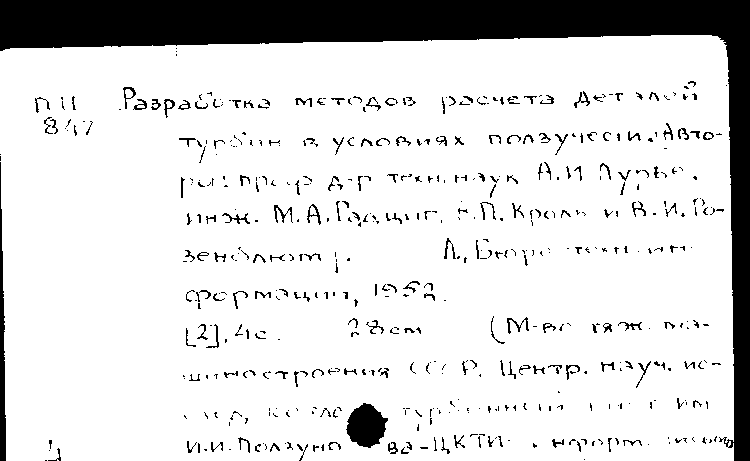 П II Разработка методов расчета деталей
847
турбин в условиях ползучести. Авто-
ры: проф. д-р техн. наук А.И. Лурье,
инж. М.А. Радциг, К.П. Кроль и В.И. Ро-
зенблюм]. Л., Бюро техн. ин-
формации, 1952.
[2], 4с. 28см (М-во тяж.
шиностроения СССР. Центр. науч. ис-
след. котло турбинный им
4 И.И. Ползуно ва-ЦКТИ. информ. письмо